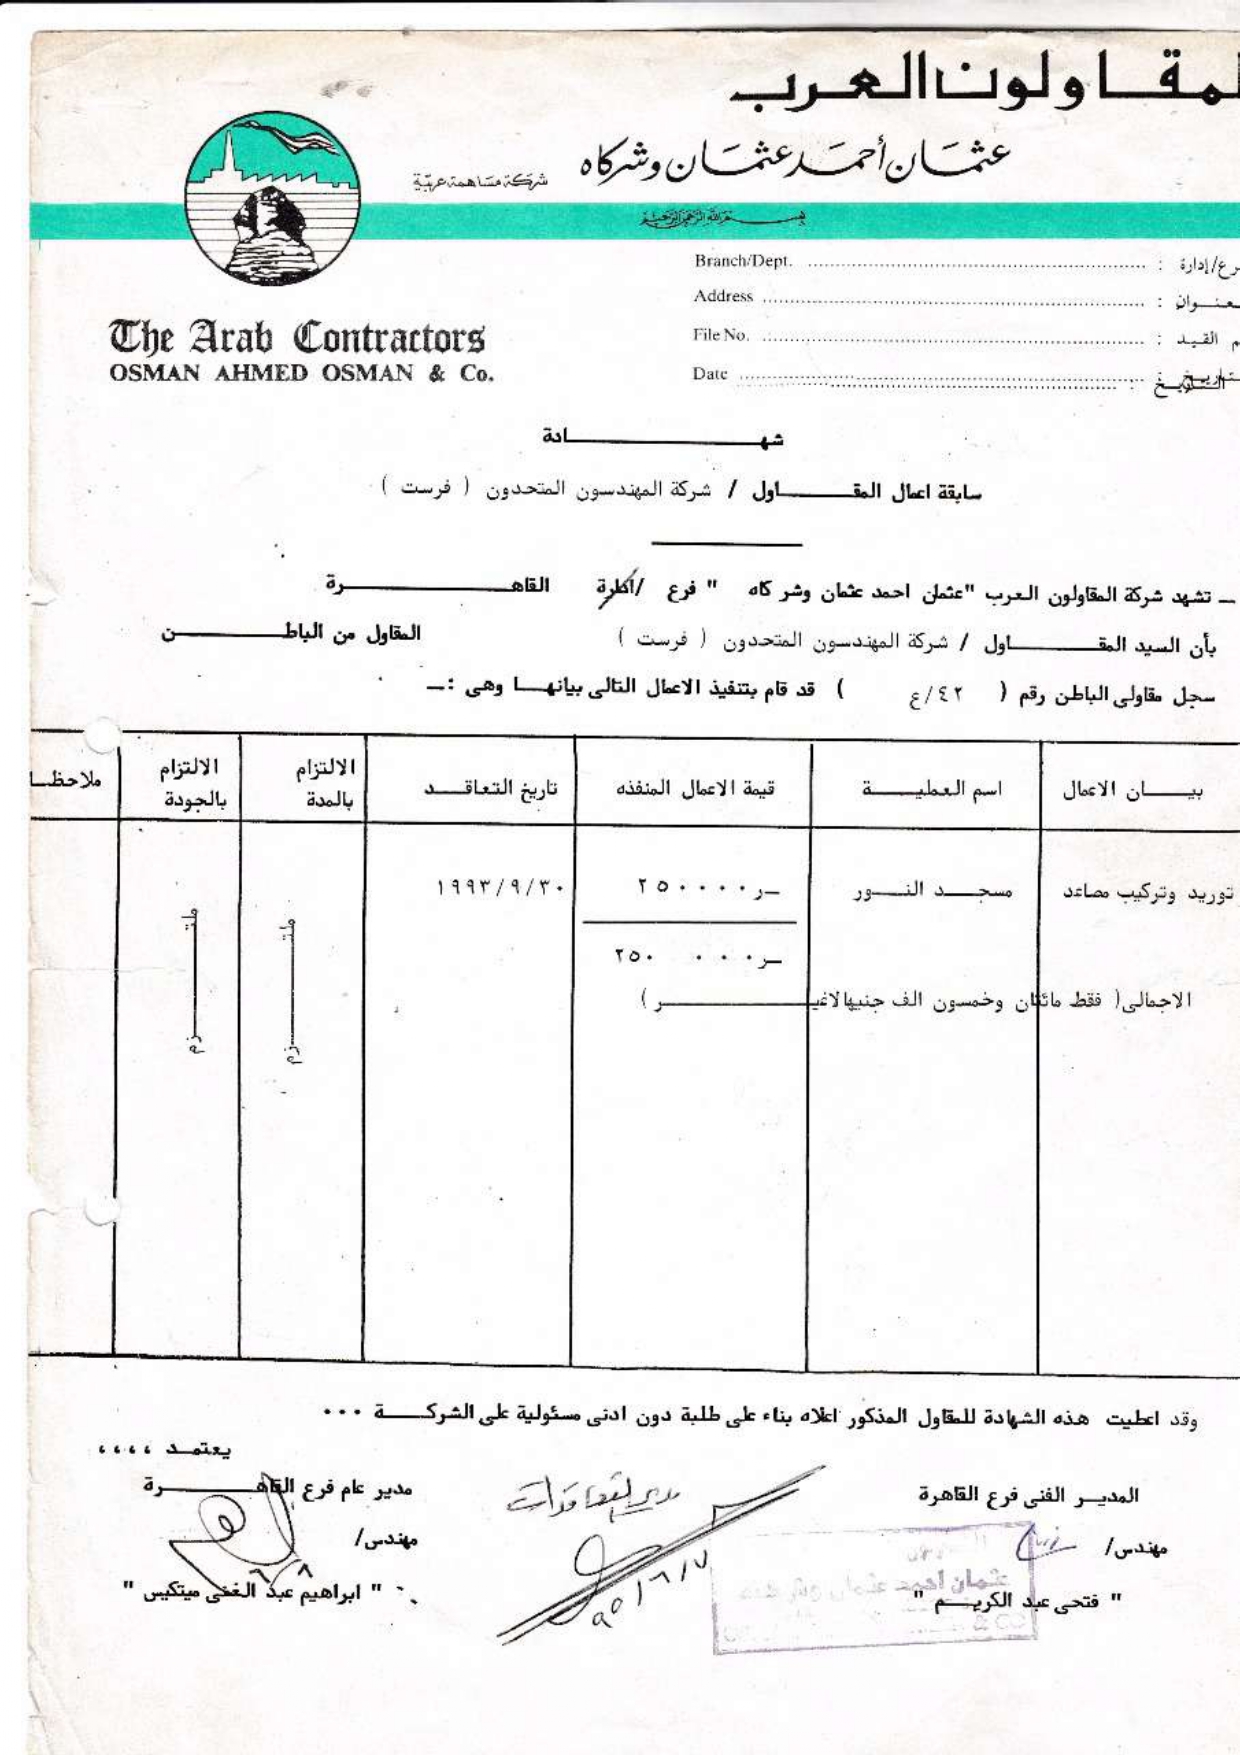 لمقاولون العرب
عثمان أحمد عثمان وشركاه
شركة مساهمة عربية
بسم الله الرحمن الرحيم
Branch/Dept. : رع/إدارة
Address : عنوان
File No. : م القيد
Date : التاريخ
The Arab Contractors
OSMAN AHMED OSMAN & Co.
شهادة
سابقة اعمال المقاول / شركة المهندسون المتحدون ( فرست )
ــ تشهد شركة المقاولون العرب "عثمان احمد عثمان وشركاه " فرع /ادارة القاهرة
بأن السيد المقاول / شركة المهندسون المتحدون ( فرست ) المقاول من الباطن
سجل مقاولى الباطن رقم ( ٤٢/ع ) قد قام بتنفيذ الاعمال التالى بيانها وهى :ــ
بيان الاعمال اسم العملية قيمة الاعمال المنفذه تاريخ التعاقد الالتزام بالمدة الالتزام بالجودة ملاحظا
توريد وتركيب مصاعد مسجد النور ٢٥٠٠٠٠ر ١٩٩٣/٩/٣٠ ملتزم ملتزم
٢٥٠٠٠٠ر
الاجمالى( فقط مائتان وخمسون الف جنيها لاغير )
وقد اعطيت هذه الشهادة للمقاول المذكور اعلاه بناء على طلبة دون ادنى مسئولية على الشركة ...
يعتمد ،،،،
المدير الفنى فرع القاهرة مدير التعاقدات مدير عام فرع القاهرة
مهندس/ مهندس/
" فتحى عبد الكريم " " ابراهيم عبد الغنى ميتكيس "
عثمان احمد عثمان وشركاه
& CO